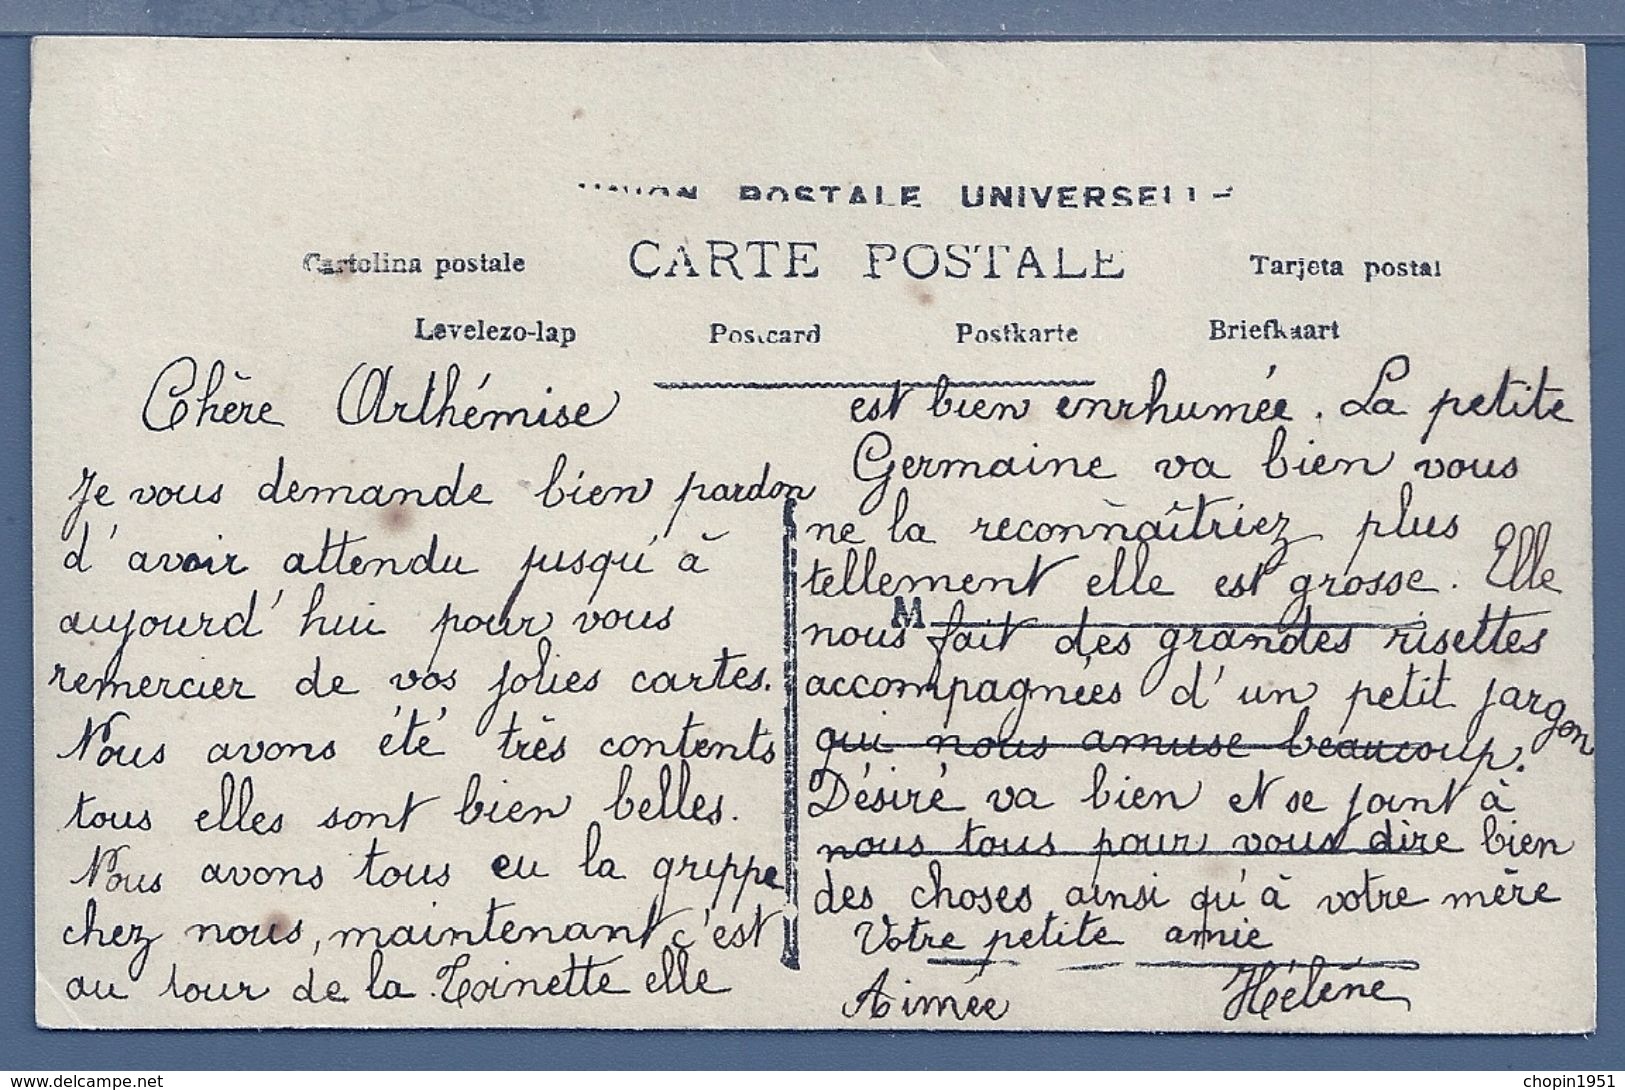 UNION POSTALE UNIVERSELLE
Cartolina postale CARTE POSTALE Tarjeta postal
Levelezo-lap Postcard Postkarte Briefkaart
Chère Arthémise
Je vous demande bien pardon
d'avoir attendu jusqu'à
aujourd'hui pour vous
remercier de vos jolies cartes.
Nous avons été très contents
tous elles sont bien belles.
Nous avons tous eu la grippe
chez nous, maintenant c'est
au tour de la Toinette elle
est bien enrhumée. La petite
Germaine va bien vous
ne la reconnaîtriez plus
tellement elle est grosse. Elle
M
nous fait des grandes risettes
accompagnées d'un petit jargon
qui nous amuse beaucoup.
Désiré va bien et se joint à
nous tous pour vous dire bien
des choses ainsi qu'à votre mère
Votre petite amie
Aimée Hélène
chopin1951